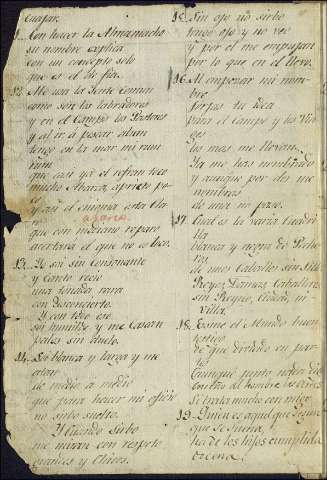 Cuajar.
11. Con hacer la Almanacha
su nombre explica
con un concepto solo
que es el de fia.
12. Me usa la Gente Comun
como son los labradores
y en el Campo los Pastores
y al ir á pescar
tengo en la mar mi
que casi ya el refran toco
mucho Abarca, aprieto po
co
y aun el enigma esta cla
abarca
ro
que con mediano reparo
acertara el que no es loco.
13. Yo soi sin consonante
y canto recio
una tonada rara
con desconcierto.
Y con todo eso
sin humilde y me casan
pales sin duelo.
14. So blanca y larga y me
atan
de medio a medio
que para hacer mi oficio
no sirbo suelta.
Y cuando sirbo
me miran con respeto
grandes y Chicos.
15. Sin ojo no sirbo
tengo ojo y no veo
y por el me empujan
por lo que en el llevo.
16. Al empezar mi nom
bre
forjas tu idea
para el Campo y los Via
ges
los mas me llevan.
Ya me has nombrado
y aunque por dos me
nombras
de uno no paso.
17. Cual es la varia Cuadri
lla
blanca y negra de Peche
ros,
de unos Caballos sin Silla
Reyes, Damas, Caballeros
sin Reyno, Ciudad, ni
Villa.
18. Tiene el Mundo buen
testigo
de que dividido en par
tes
Aunque junto nada dice
contra el hombre
Se trata mucho con migo
19. Quien es aquel que sigue
que se sueña,
ha de los hijos cumplida
trecena.